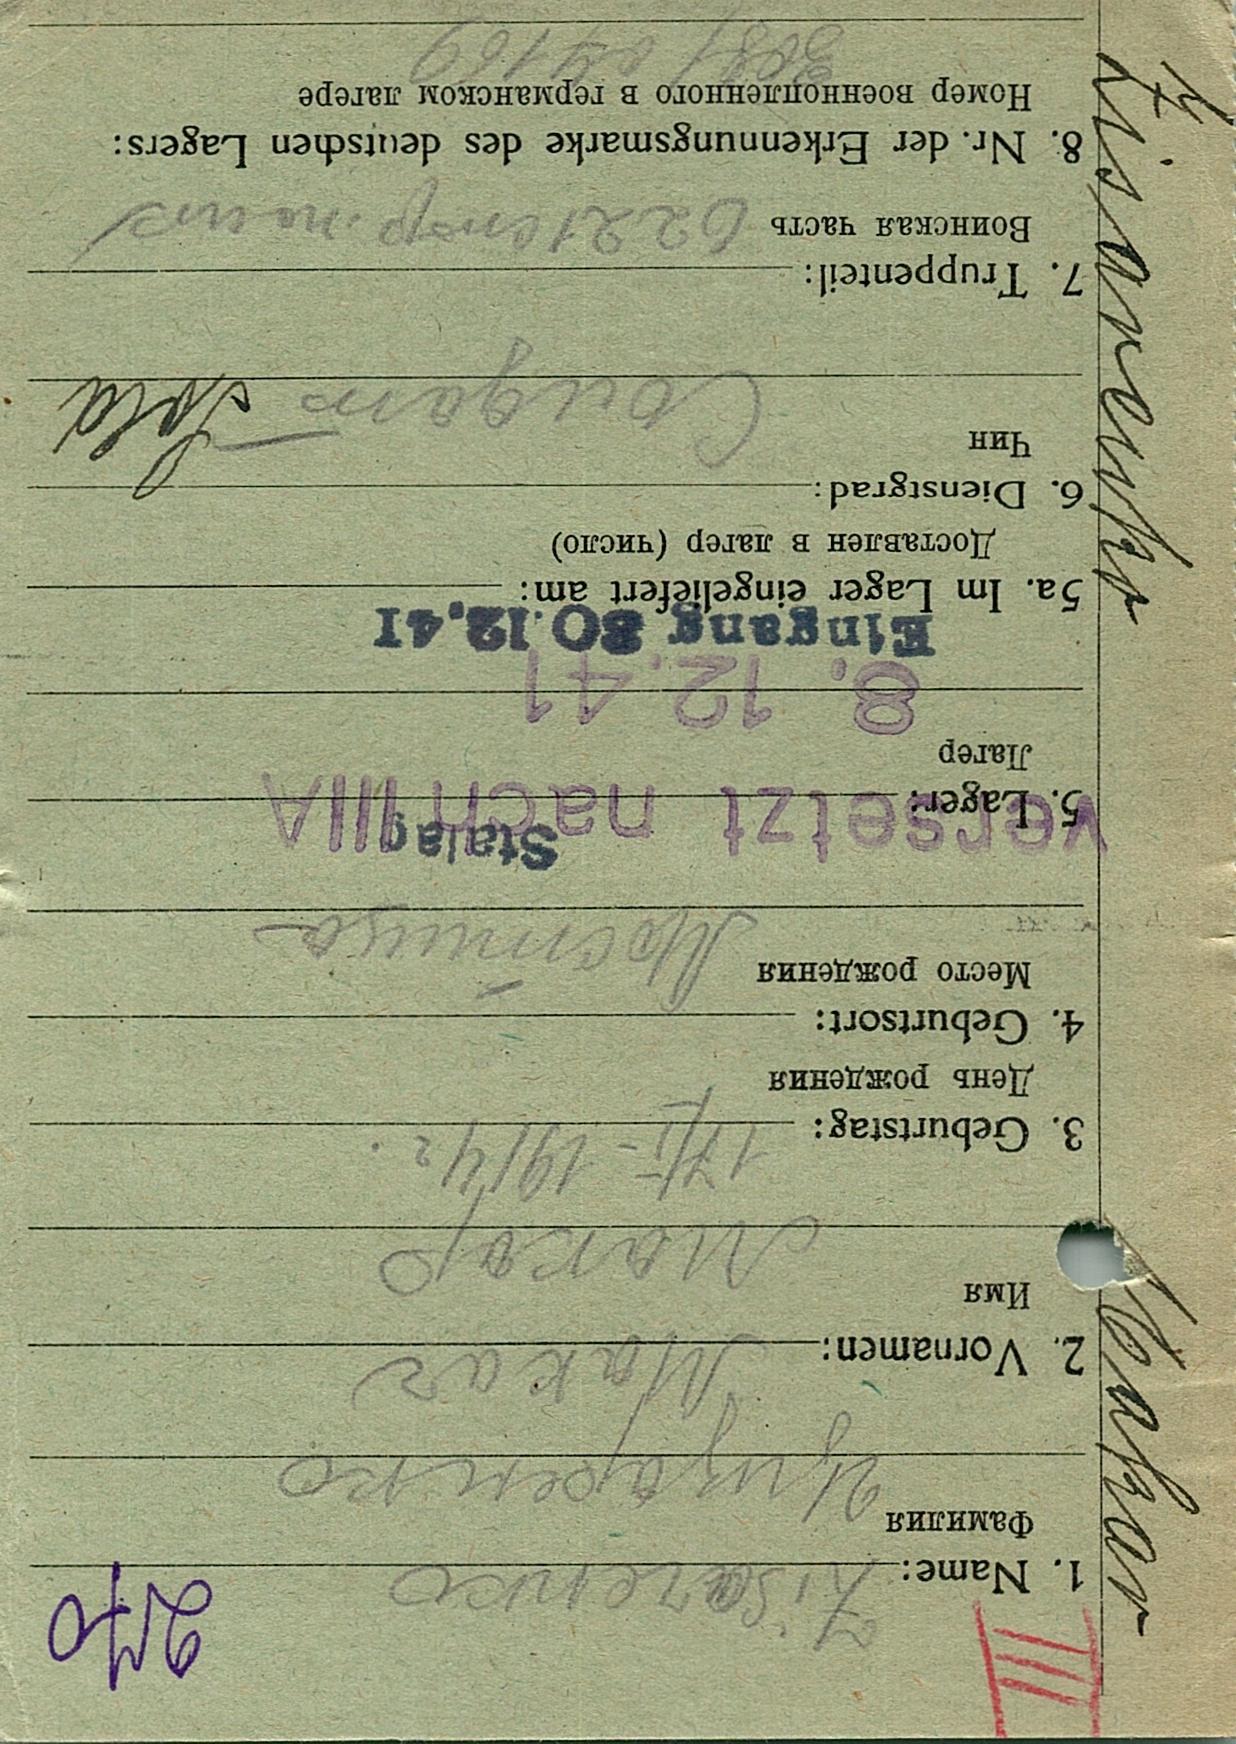 270
III
Zisarenko
1. Name:
Фамилия
Цизаренко
Makar
2. Vornamen:
Имя
Макар
17/I - 1914 г.
3. Geburtstag:
День рождения
4. Geburtsort:
Место рождения
Stalag
5. Lager:
versetzt nach IIIA
Лагер
8. 12. 41
Eingang 30.12.41
5a. Im Lager eingeliefert am:
Доставлен в лагер (число)
6. Dienstgrad:
Чин
Солдат
Sold
7. Truppenteil:
Воинская часть
622
8. Nr. der Erkennungsmarke des deutschen Lagers:
Номер военнопленного в германском лагере
Zisarenko
Makar